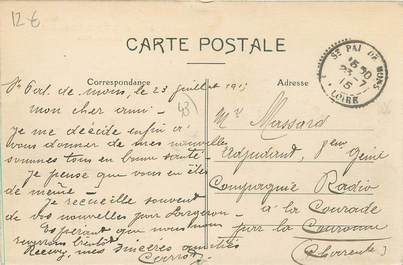 12 €
CARTE POSTALE
Correspondance
Adresse
St PAL DE MONS
23-7
15
LOIRE
St Pal de Mons, le 23 juillet 191
mon cher ami -
Je me décide enfin à
vous donner de mes nouvelles
sommes tous en bonne santé -
Je pense que vous en êtes
de même -
Je recueille souvent
de vos nouvelles par
Espérant que nous nous
reverrons bientôt
Recevez mes sincères amitiés
Mr Massard
Adjudant, 8ème Génie
Compagnie Radio
à la Courade
par la Couronne
(Charente)